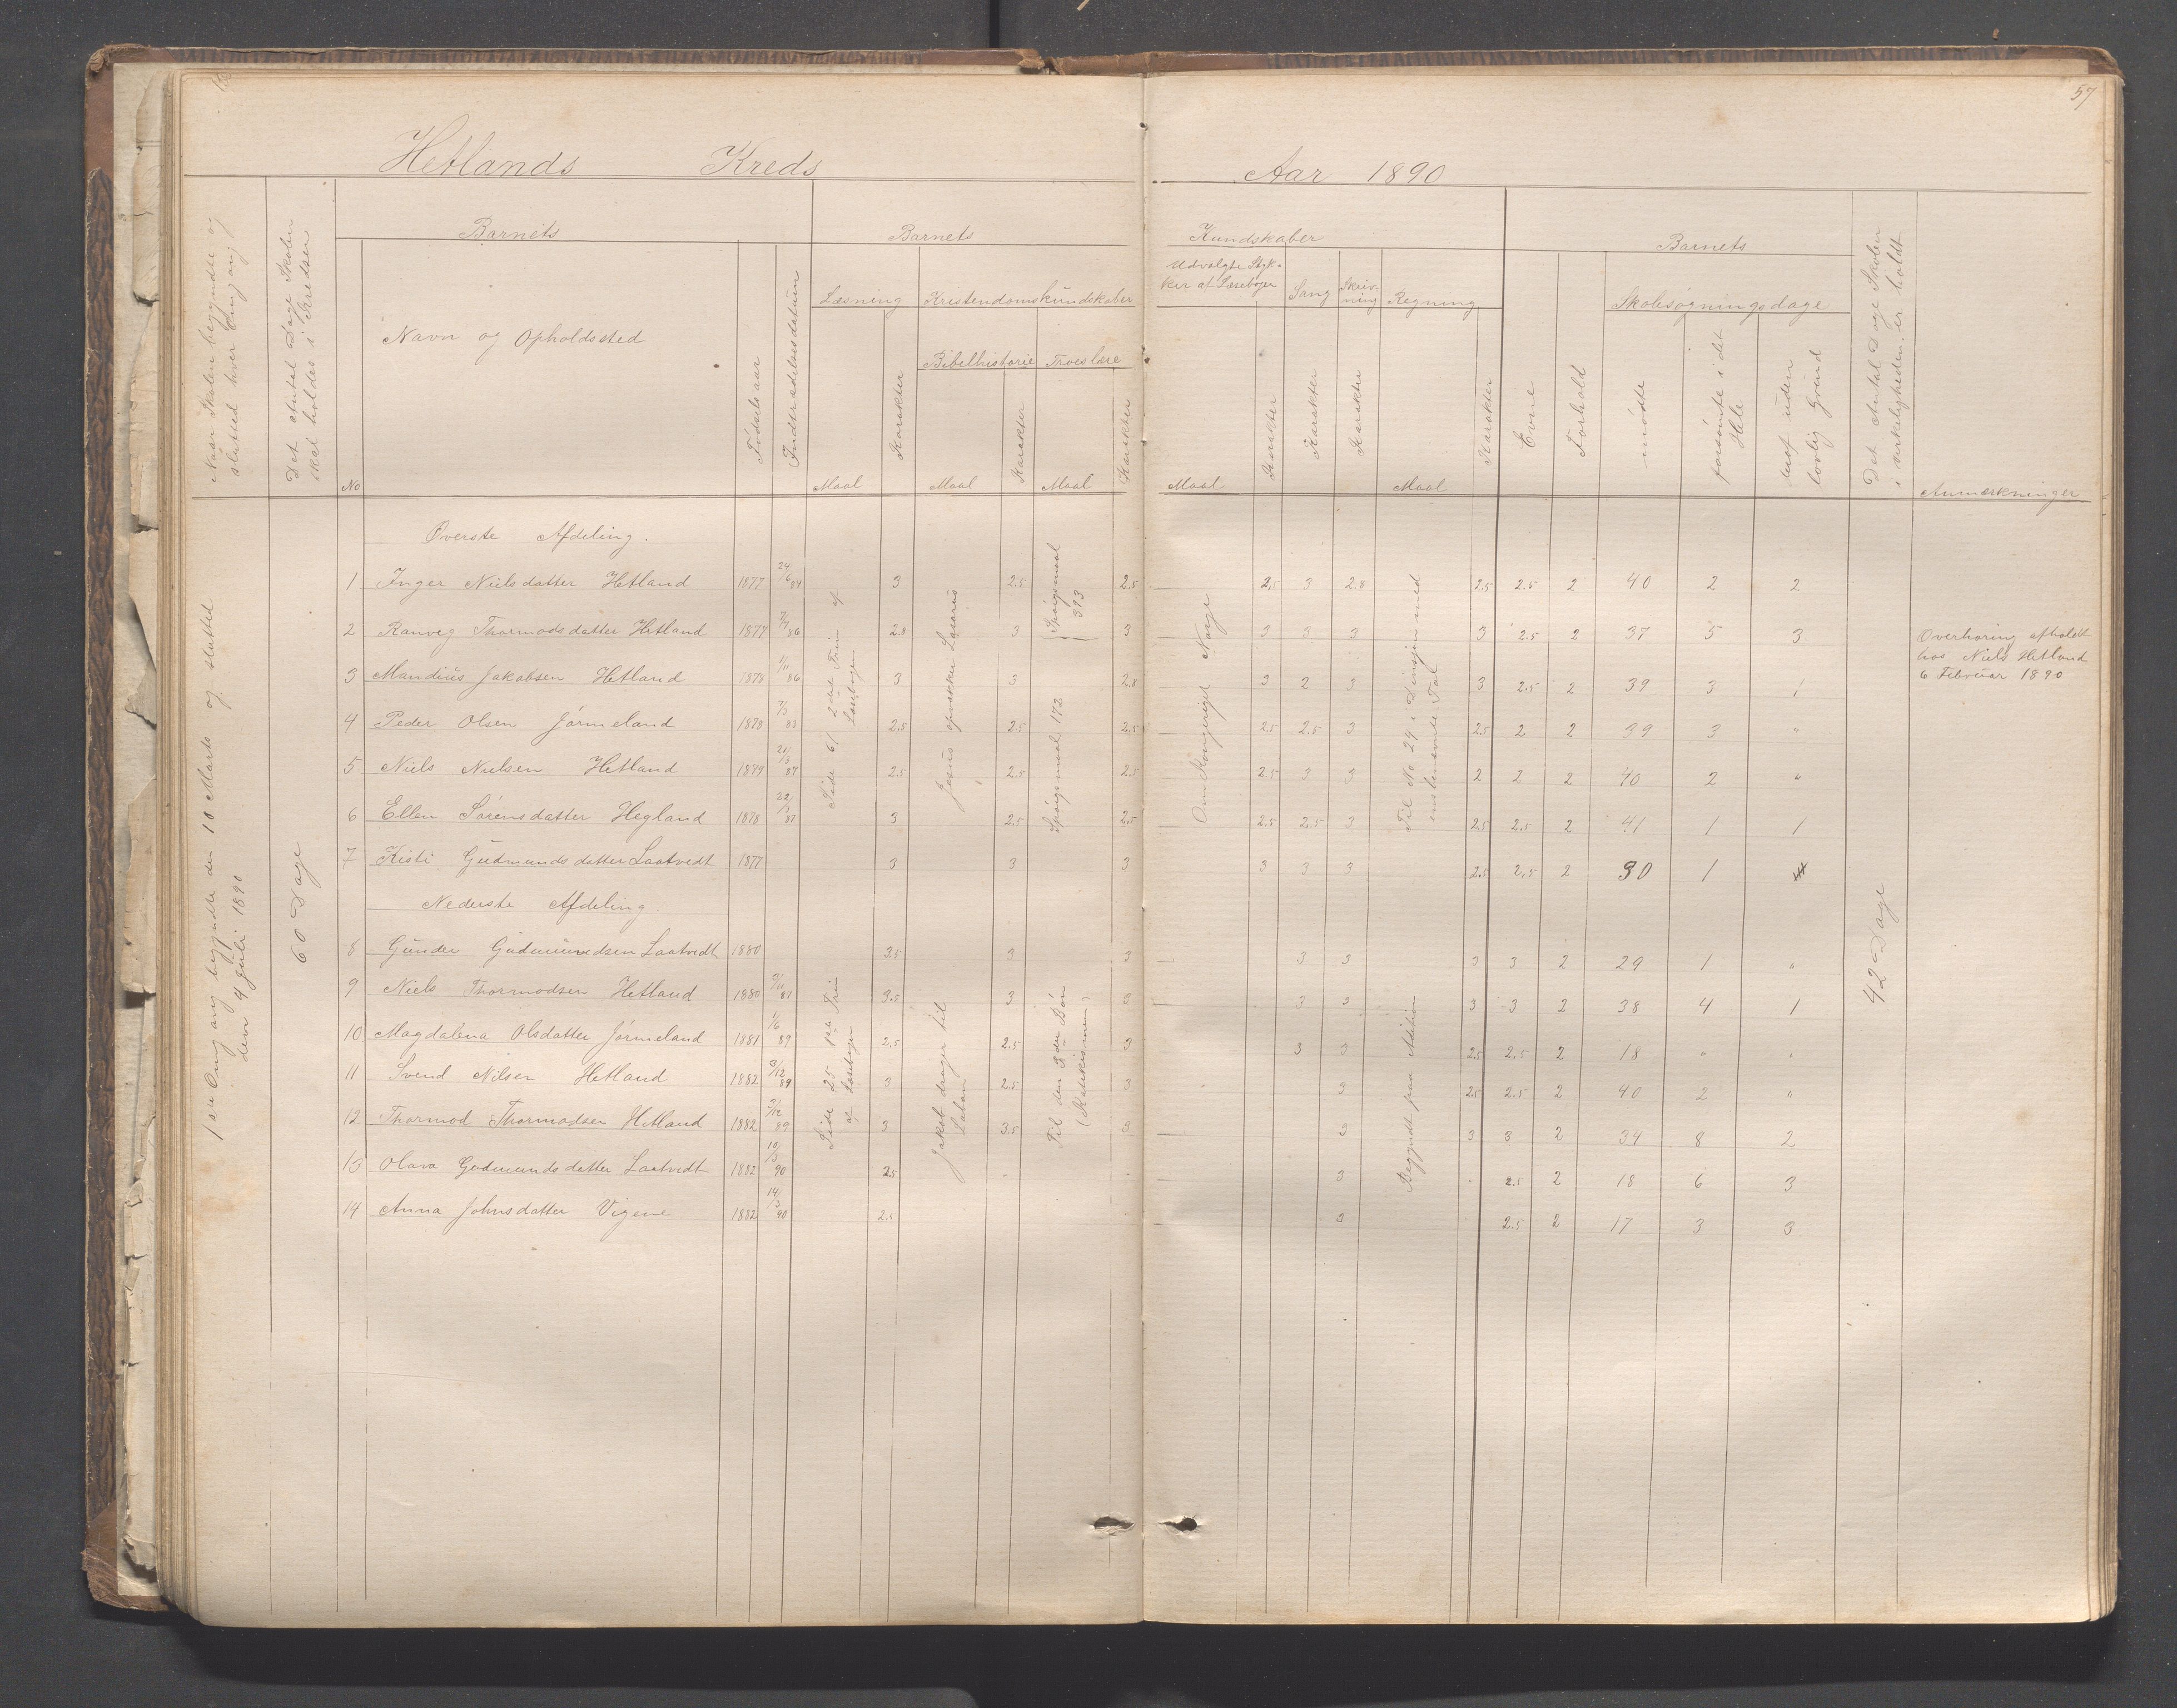 57
Hetlands Kreds Aar 1890
Naar Skolen begyndte og
slutted hver Omgang
Det Antal Dage Skolen
skal holdes i Kredsen
Barnets
No
Navn og Opholdssted
Fødselsaar
Indtrædelsesdatum
Barnets
Læsning
Maal
Karakter
Kristendomskundskaber
Bibelhistorie
Maal
Karakter
Troeslære
Maal
Karakter
Kundskaber
Udvalgte Styk-
ker af Læsebøger
Maal
Karakter
Sang
Karakter
Skriv-
ning
Karakter
Regning
Maal
Karakter
Barnets
Evne
Forhold
Skolesøgningsdage
mødte
forsømte i det
Hele
heraf uden
lovlig Grund
Det Antal Dage Skolen
i virkeligheden er holdt
Anmærkninger
1ste Omgang begyndte den 10 Marts og sluttet
den 4 Juli 1890
60 Dage
Øverste Afdeling.
1 Inger Nielsdatter Hetland 1877 24/6 84 3 2.5 2.5 2,5 3 2.8 2.5 2.5 2 40 2 2
2 Ranveg Thormodsdatter Hetland 1877 7/7 86 2.8 3 3 3 3 3 3 2.5 2 37 5 3
3 Mandius Jakobsen Hetland 1878 1/11 86 3 3 2.8 3 2 3 3 2.5 2 39 3 1
4 Peder Olsen Jørmeland 1878 7/5 83 2.5 2.5 2.5 2.5 2.5 3 2.5 2 2 39 3 "
5 Niels Nielsen Hetland 1879 21/3 87 2.5 2.5 2.5 2.5 3 3 2 2 2 40 2 "
6 Ellen Sørensdatter Hegland 1878 22/3 87 3 2.5 2.5 2.5 2.5 3 2.5 2.5 2 41 1 1
7 Kisti Gudmundsdatter Laatvedt 1877 3 3 3 3 3 3 2.5 2,5 2 30 1
Side 61 2det Trin af
Læsebogen
Jesus opvækker Lasarus
Spørgsmaal
313
Spørgsmaal 172
Om Kongeriget Norge
Til No 24 i Divisjon med
ensbenævnte Tal
Overhøring afholdt
hos Niels Hetland
6 Februar 1890
Nederste Afdeling.
8 Gunder Gudmundsen Laatvedt 1880 3.5 3 3 3 3 3 3 2 29 1 "
9 Niels Thormodsen Hetland 1880 5/11 87 3.5 3 3 3 3 3 3 2 38 4 1
10 Magdalena Olsdatter Jørmeland 1881 1/6 89 2,5 2.5 3 3 3 2.5 2,5 2 18 " "
11 Svend Nilsen Hetland 1882 3/12 89 3 2.5 3 3 2.5 2.5 2 40 2 "
12 Thormod Thormodsen Hetland 1882 3/12 89 3 3.5 3 3 3 3 2 34 8 2
13 Olava Gudmundsdatter Laatvedt 1882 10/3 90 2.5 3 2.5 2 18 6 3
14 Anna Johnsdatter Vigene 1882 14/3 90 2.5 3 2.5 2 17 3 3
Side 25 1ste Trin
af Læsebogen
Jakob drager til
Laban
Til den 3die Bøn
(Katekismen)
Begyndt paa Adition
42 Dage